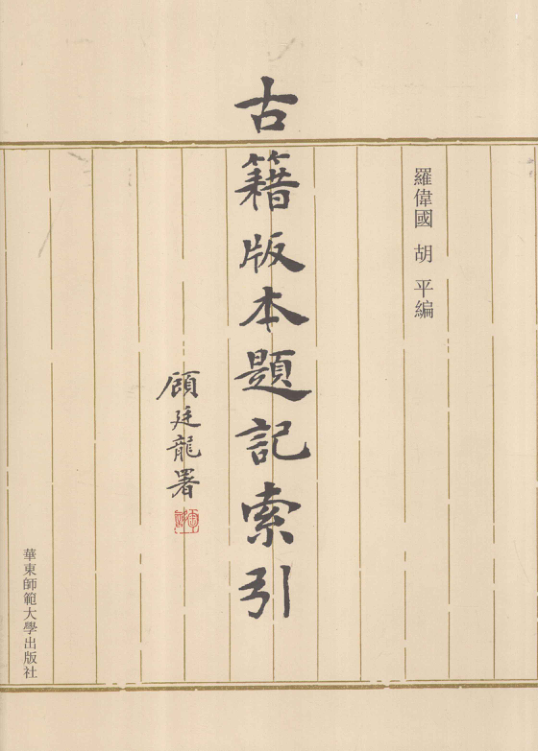 羅偉國 胡 平編
古籍版本題記索引
顧廷龍署
華東師範大學出版社